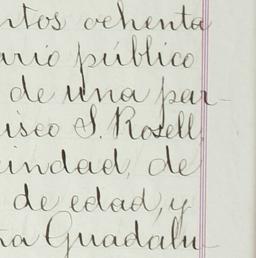 ntos ochenta
ario público
de una par-
isco S. Rosell,
cindad, de
de edad, y
ña Guadalu-